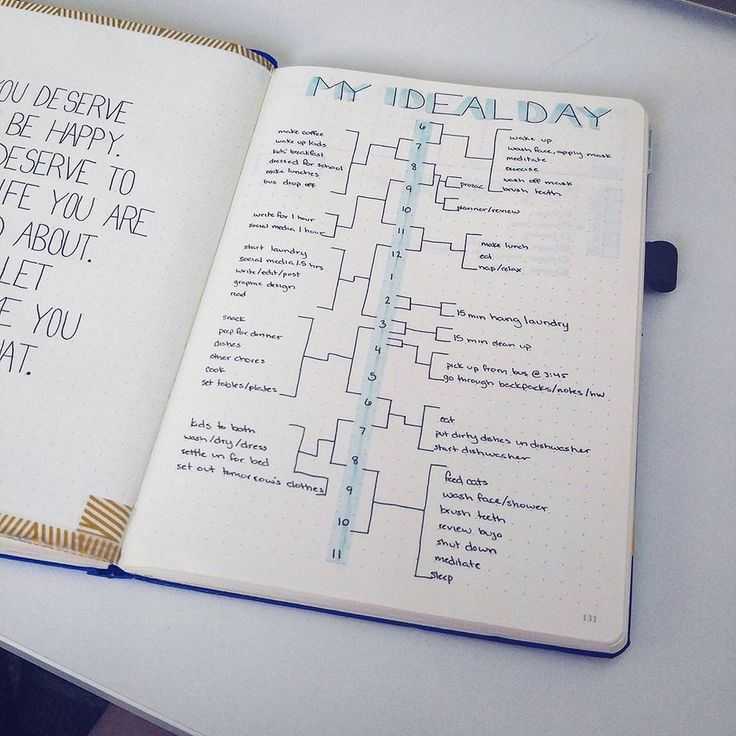 OU DESERVE
BE HAPPY.
DESERVE TO
IFE YOU ARE
D ABOUT.
LET
E YOU
HAT.
MY IDEAL DAY
make coffee
wake up kids
kids' breakfast
dressed for school
make lunches
bus drop off
write for 1 hour
social media 1 hour
start laundry
social media 1.5 hrs
write/edit/post
graphic design
read
snack
prep for dinner
dishes
other chores
cook
set tables/plates
kids to bath
wash/dry/dress
settle in for bed
set out tomorrow's clothes
6
7
8
9
10
11
12
1
2
3
4
5
6
7
8
9
10
11
wake up
wash face, apply mask
meditate
exercise
wash off mask
brush teeth
prozac
planner/review
make lunch
eat
nap/relax
15 min hang laundry
15 min clean up
pick up from bus @ 3:45
go through backpacks/notes/hw
eat
put dirty dishes in dishwasher
start dishwasher
feed cats
wash face/shower
brush teeth
review bujo
shut down
meditate
sleep
131